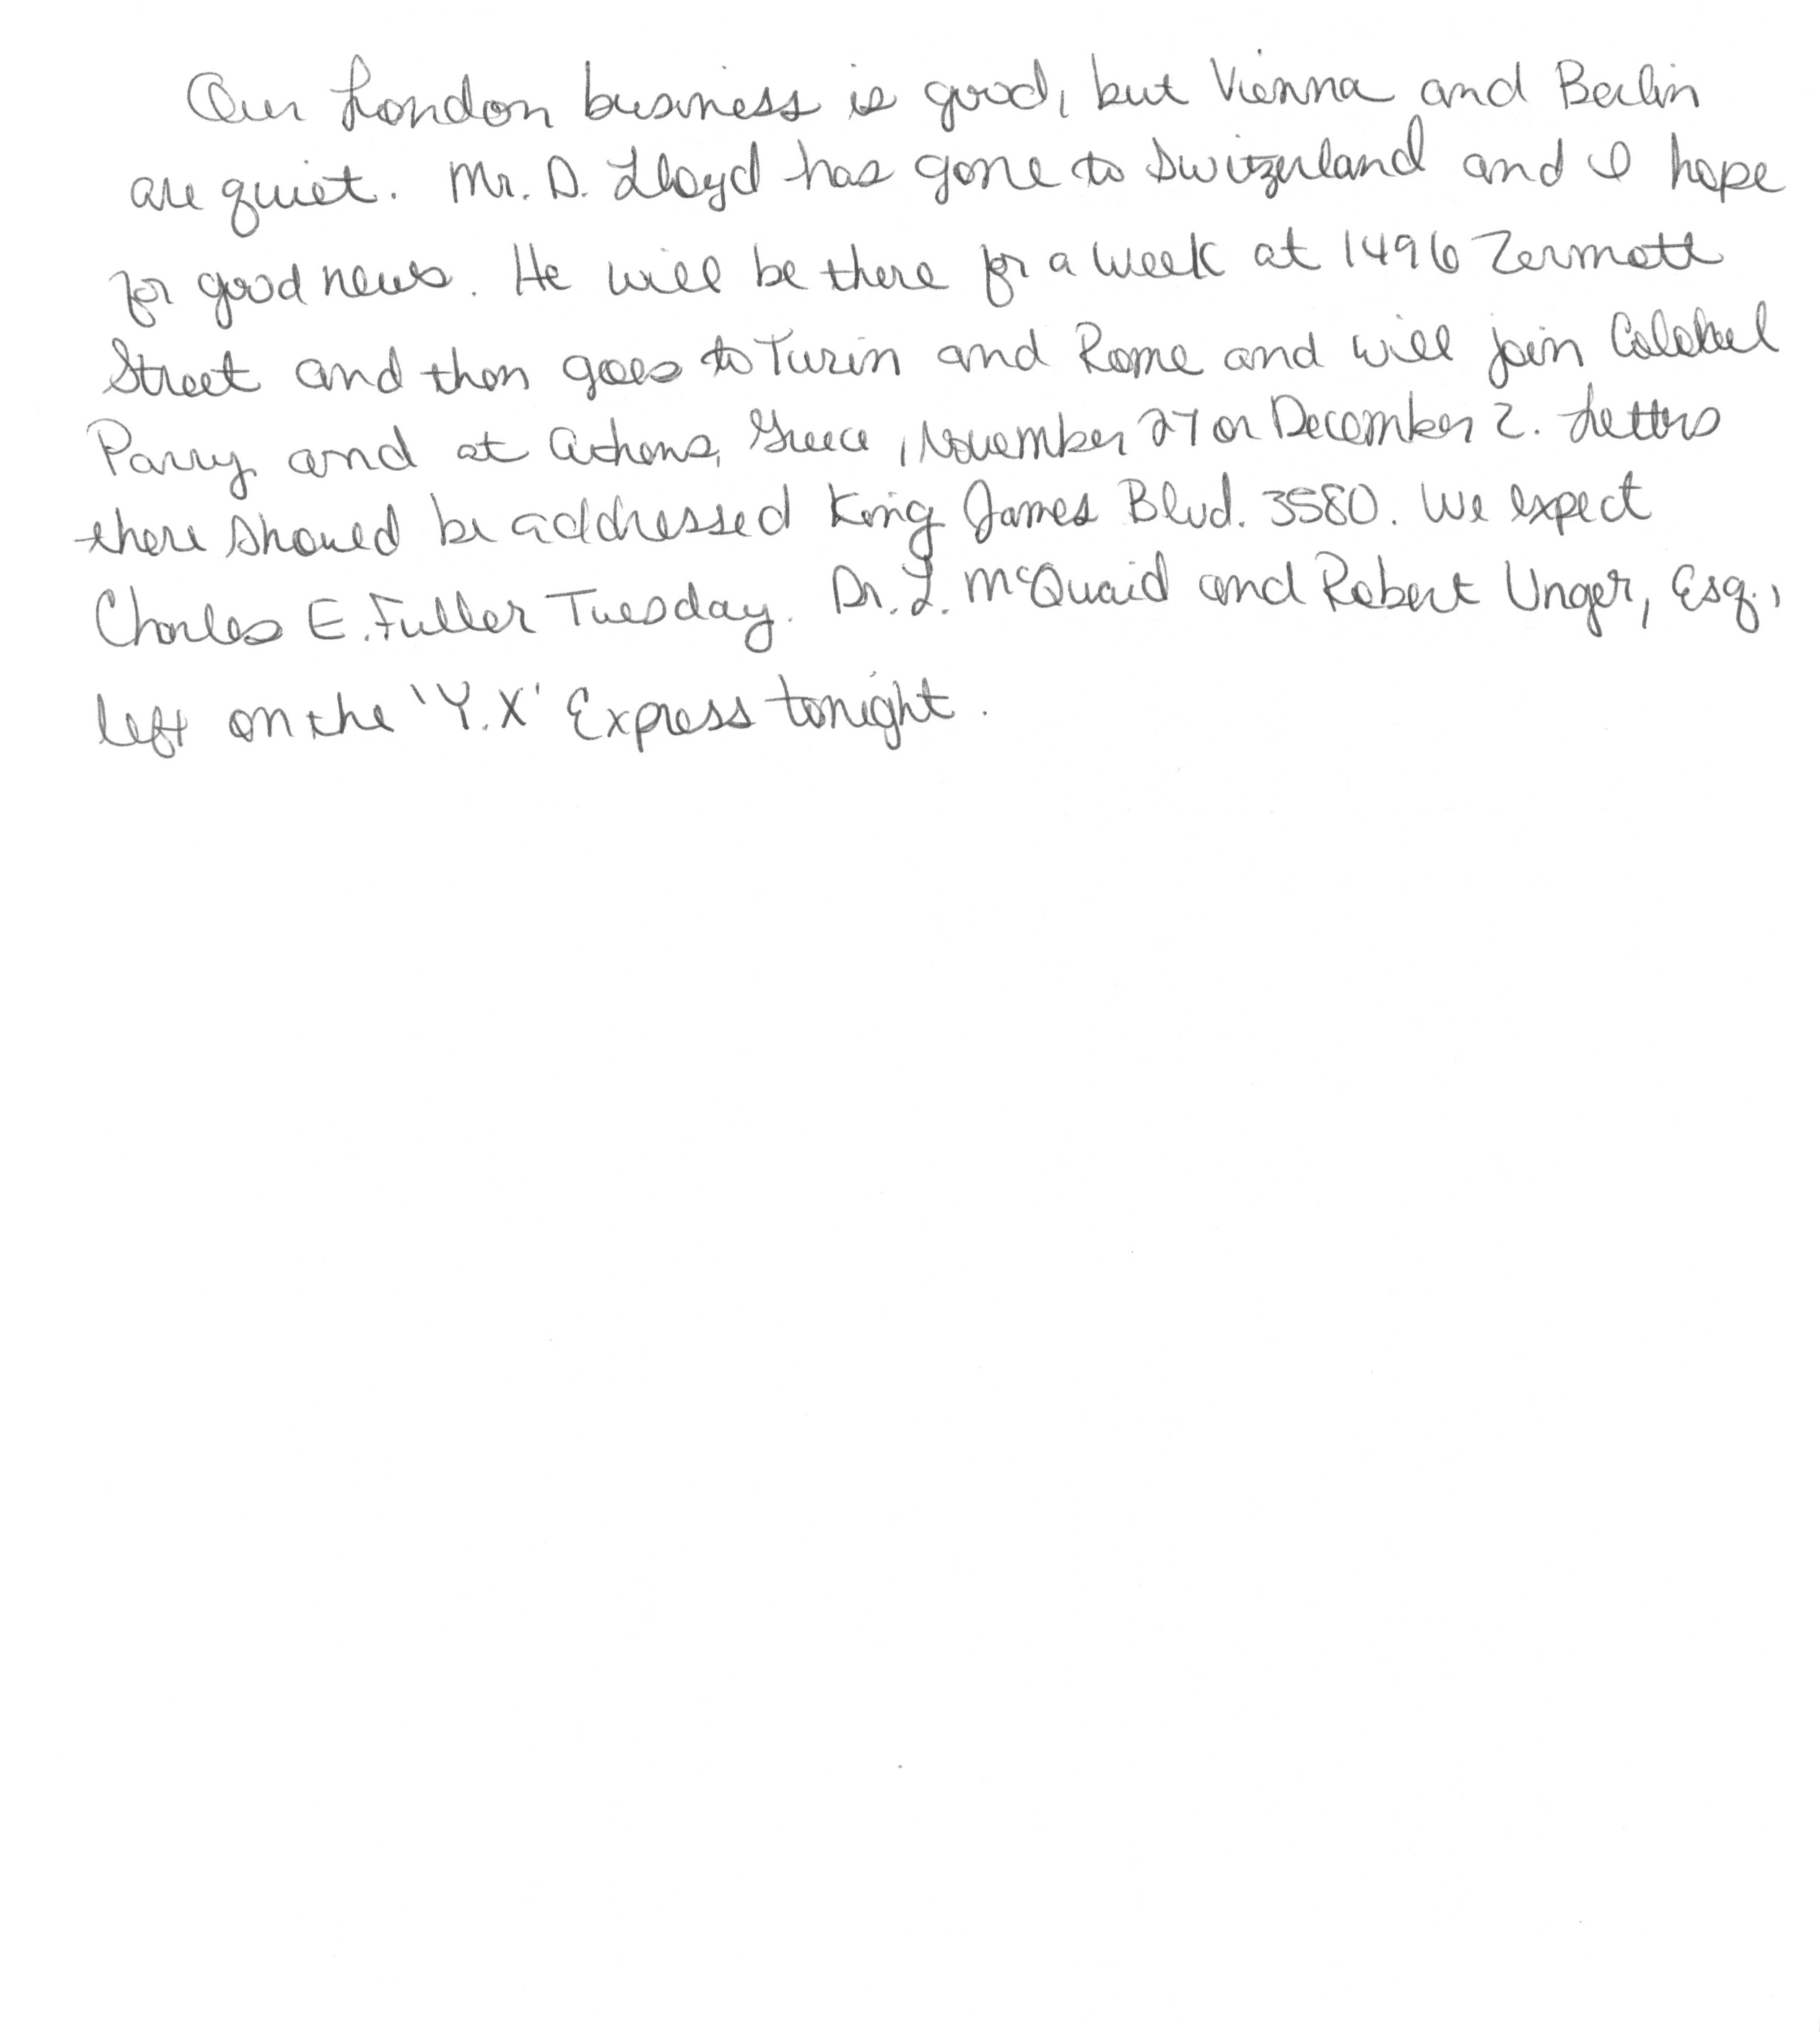 Our London business is good, but Vienna and Berlin
are quiet. Mr. D. Lloyd has gone to Switzerland and I hope
for good news. He will be there for a week at 1496 Zermott
Street and then goes to Turin and Rome and will join
Parry and at Athens, Greece, November 27 or December 2. Letters
there should be addressed King James Blvd. 3580. We expect
Charles E. Fuller Tuesday. Dr. L. McQuaid and Robert Unger, Esq.,
left on the 'Y.X' Express tonight.